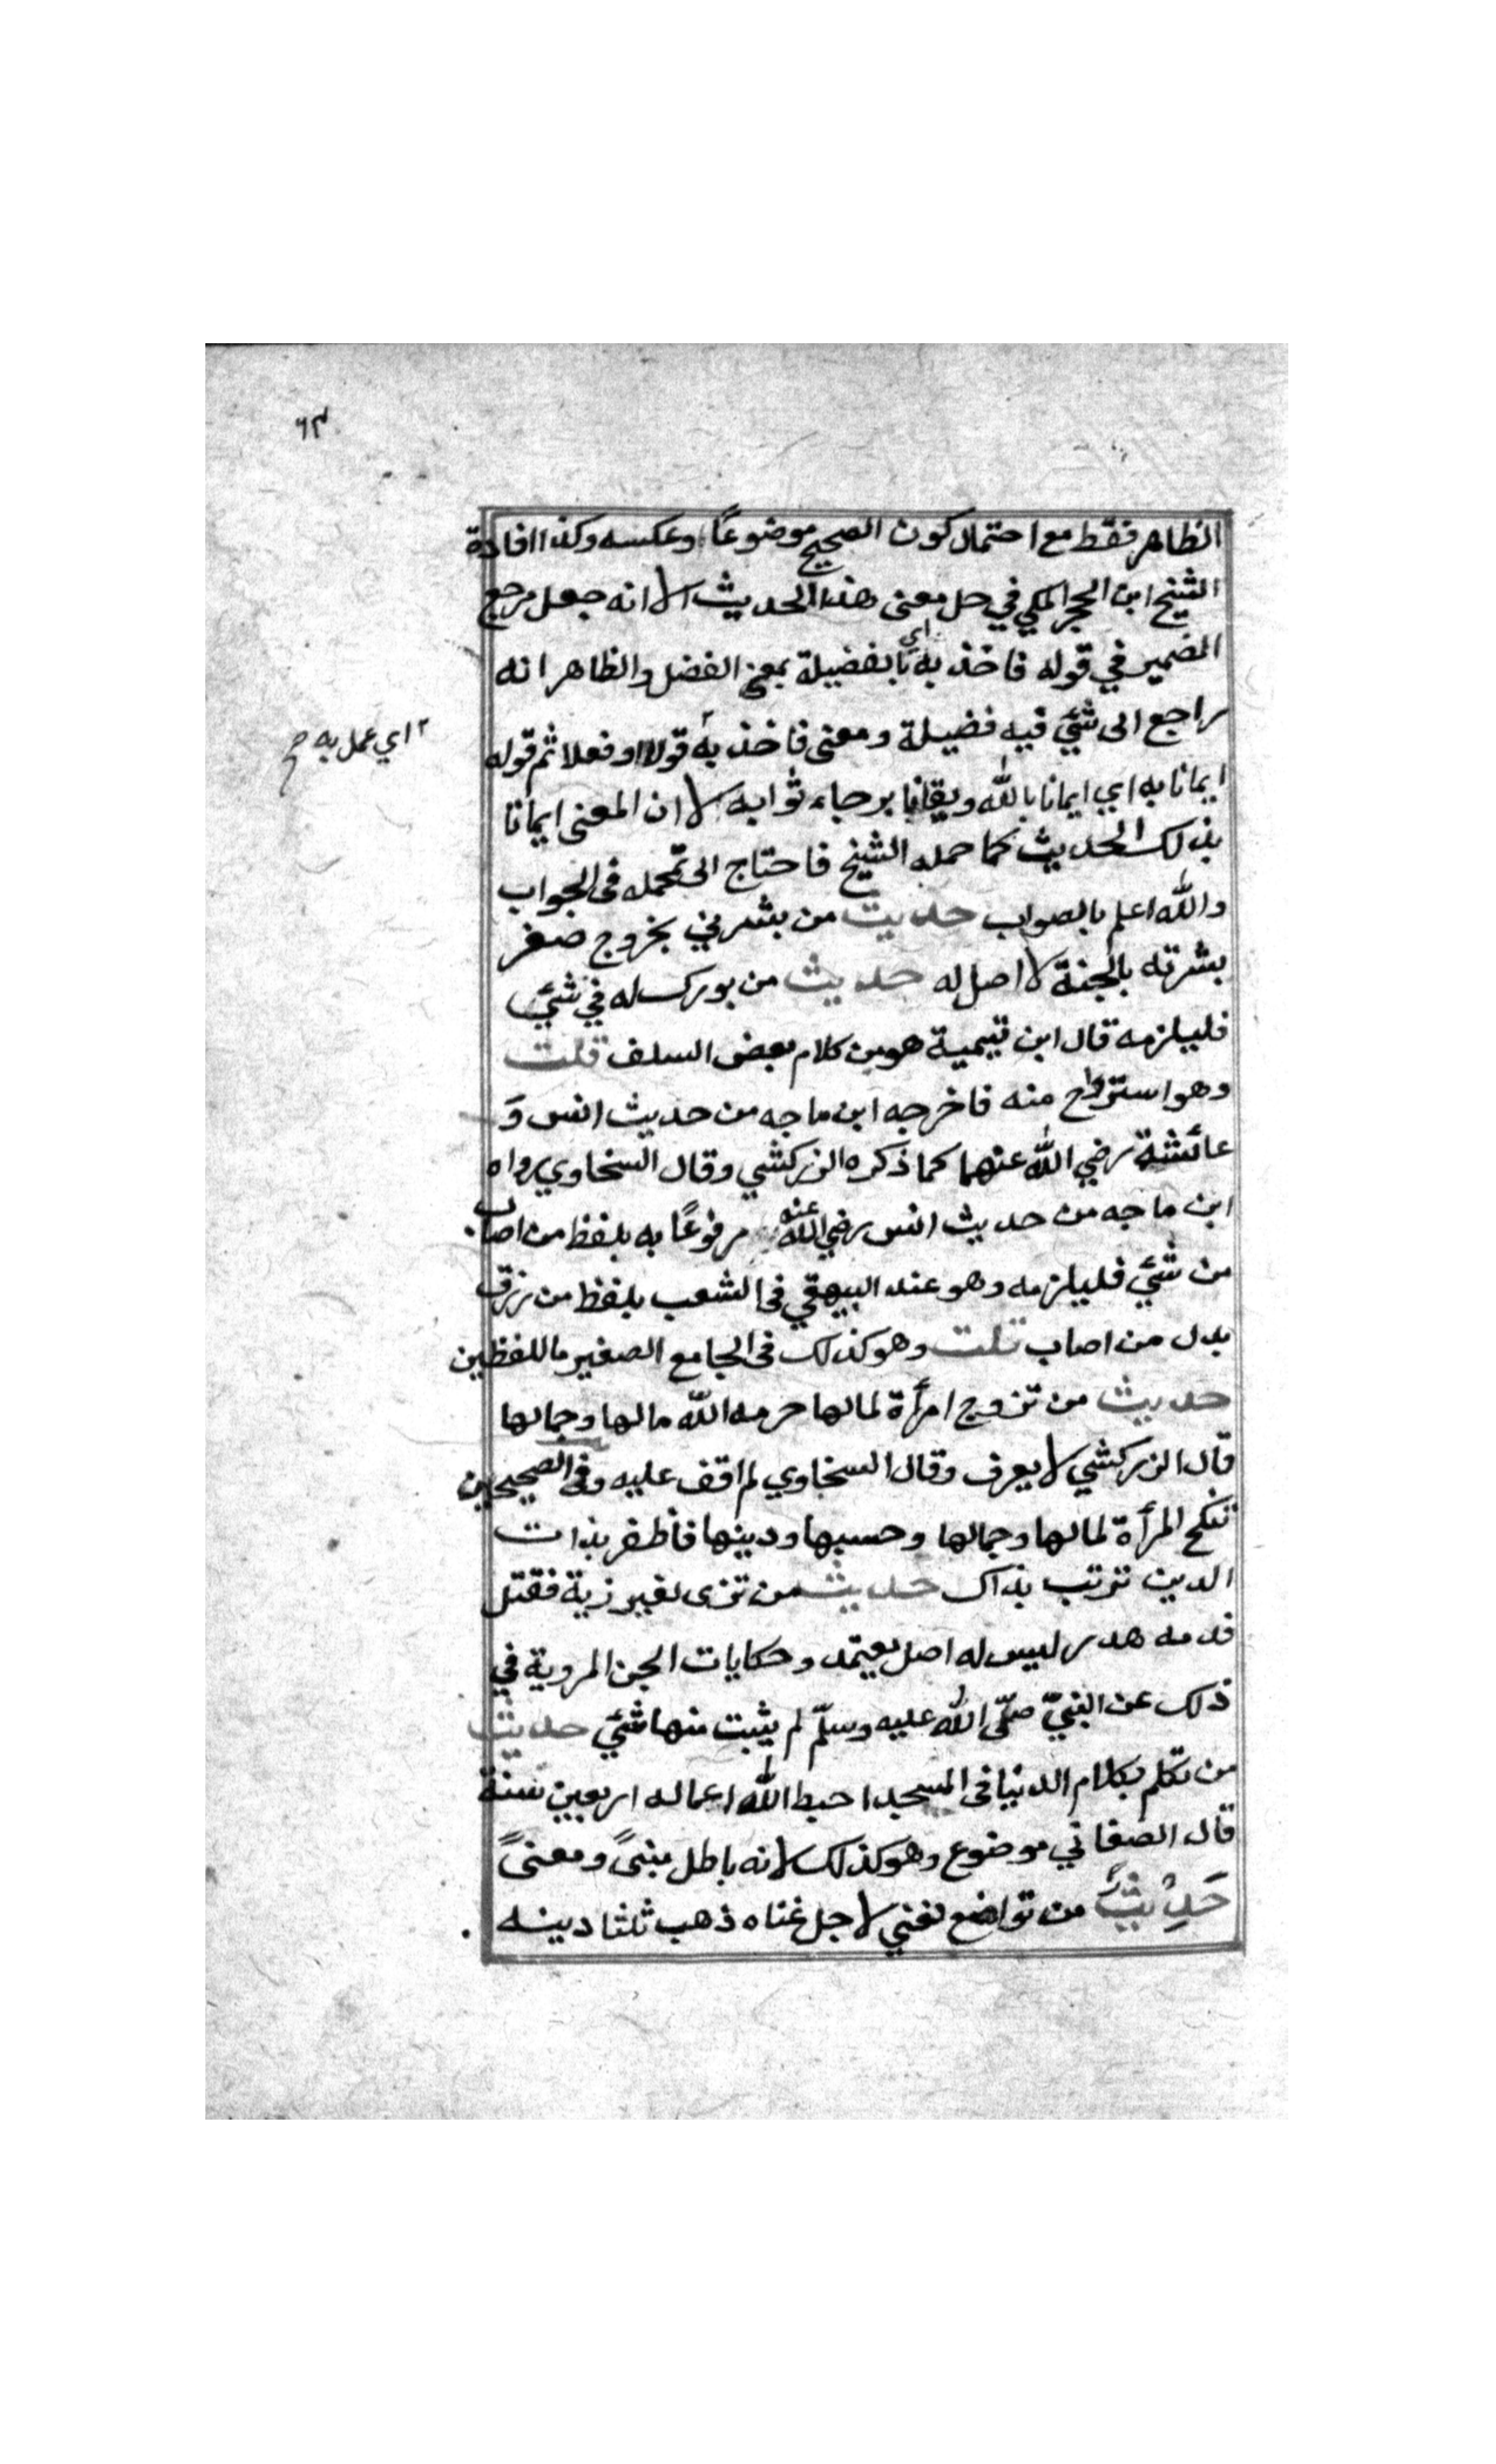 ٦٣
الظاهر فقط مع احتمال كون الصحيح موضوعًا وعكسه وكذا افادة
الشيخ ابن الحجر المكي في حل معنى هذا الحديث الا انه جعل مرجع
الضمير في قوله فاخذ به اي بالفضيلة بمعنى الفضل والظاهر انه
راجع الى شئي فيه فضيلة ومعنى فاخذ به قولا او فعلا ثم قوله
٢ اي عمل به صح
ايمانا به اي ايمانا بالله ويقانا برجاء ثوابه لا ان المعنى ايمانا
بذلك الحديث كما حمله الشيخ فاحتاج الى تمحله في الجواب
والله اعلم بالصواب حديث من بشرني بخروج صفر
بشرته بالجنة لا اصل له حديث من بورك له في شئي
فليلزمه قال ابن تيمية هو من كلام بعض السلف قلت
وهو استرواح منه فاخرجه ابن ماجه من حديث انس وَ
عائشة رضي الله عنهما كما ذكره الزركشي وقال السخاوي رواه
ابن ماجه من حديث انس رضي الله عنه مرفوعًا به بلفظ من اصاب
من شئي فليلزمه وهو عند البيهقي في الشعب بلفظ من رزق
بدل من اصاب قلت وهو كذلك في الجامع الصغير باللفظين
حديث من تزوج امرأة لمالها حرمه الله مالها وجمالها
قال الزركشي لا يعرف وقال السخاوي لم اقف عليه وفي الصحيحين
تنكح المرأة لمالها وجمالها وحسبها ودينها فاظفر بذات
الدين تربت يداك حديث من تزى لغير زية فقتل
فدمه هدر ليس له اصل يعتمد وحكايات الجن المروية في
ذلك عن النبيّ صلّى الله عليه وسلّم لم يثبت منها شئي حديث
من تكلم بكلام الدنيا في المسجد احبط الله اعماله اربعين سنة
قال الصغاني موضوع وهو كذلك لانه باطل مبنىً ومعنىً
حَدِيْثٌ من تواضع لغني لاجل غناه ذهب ثلثا دينه